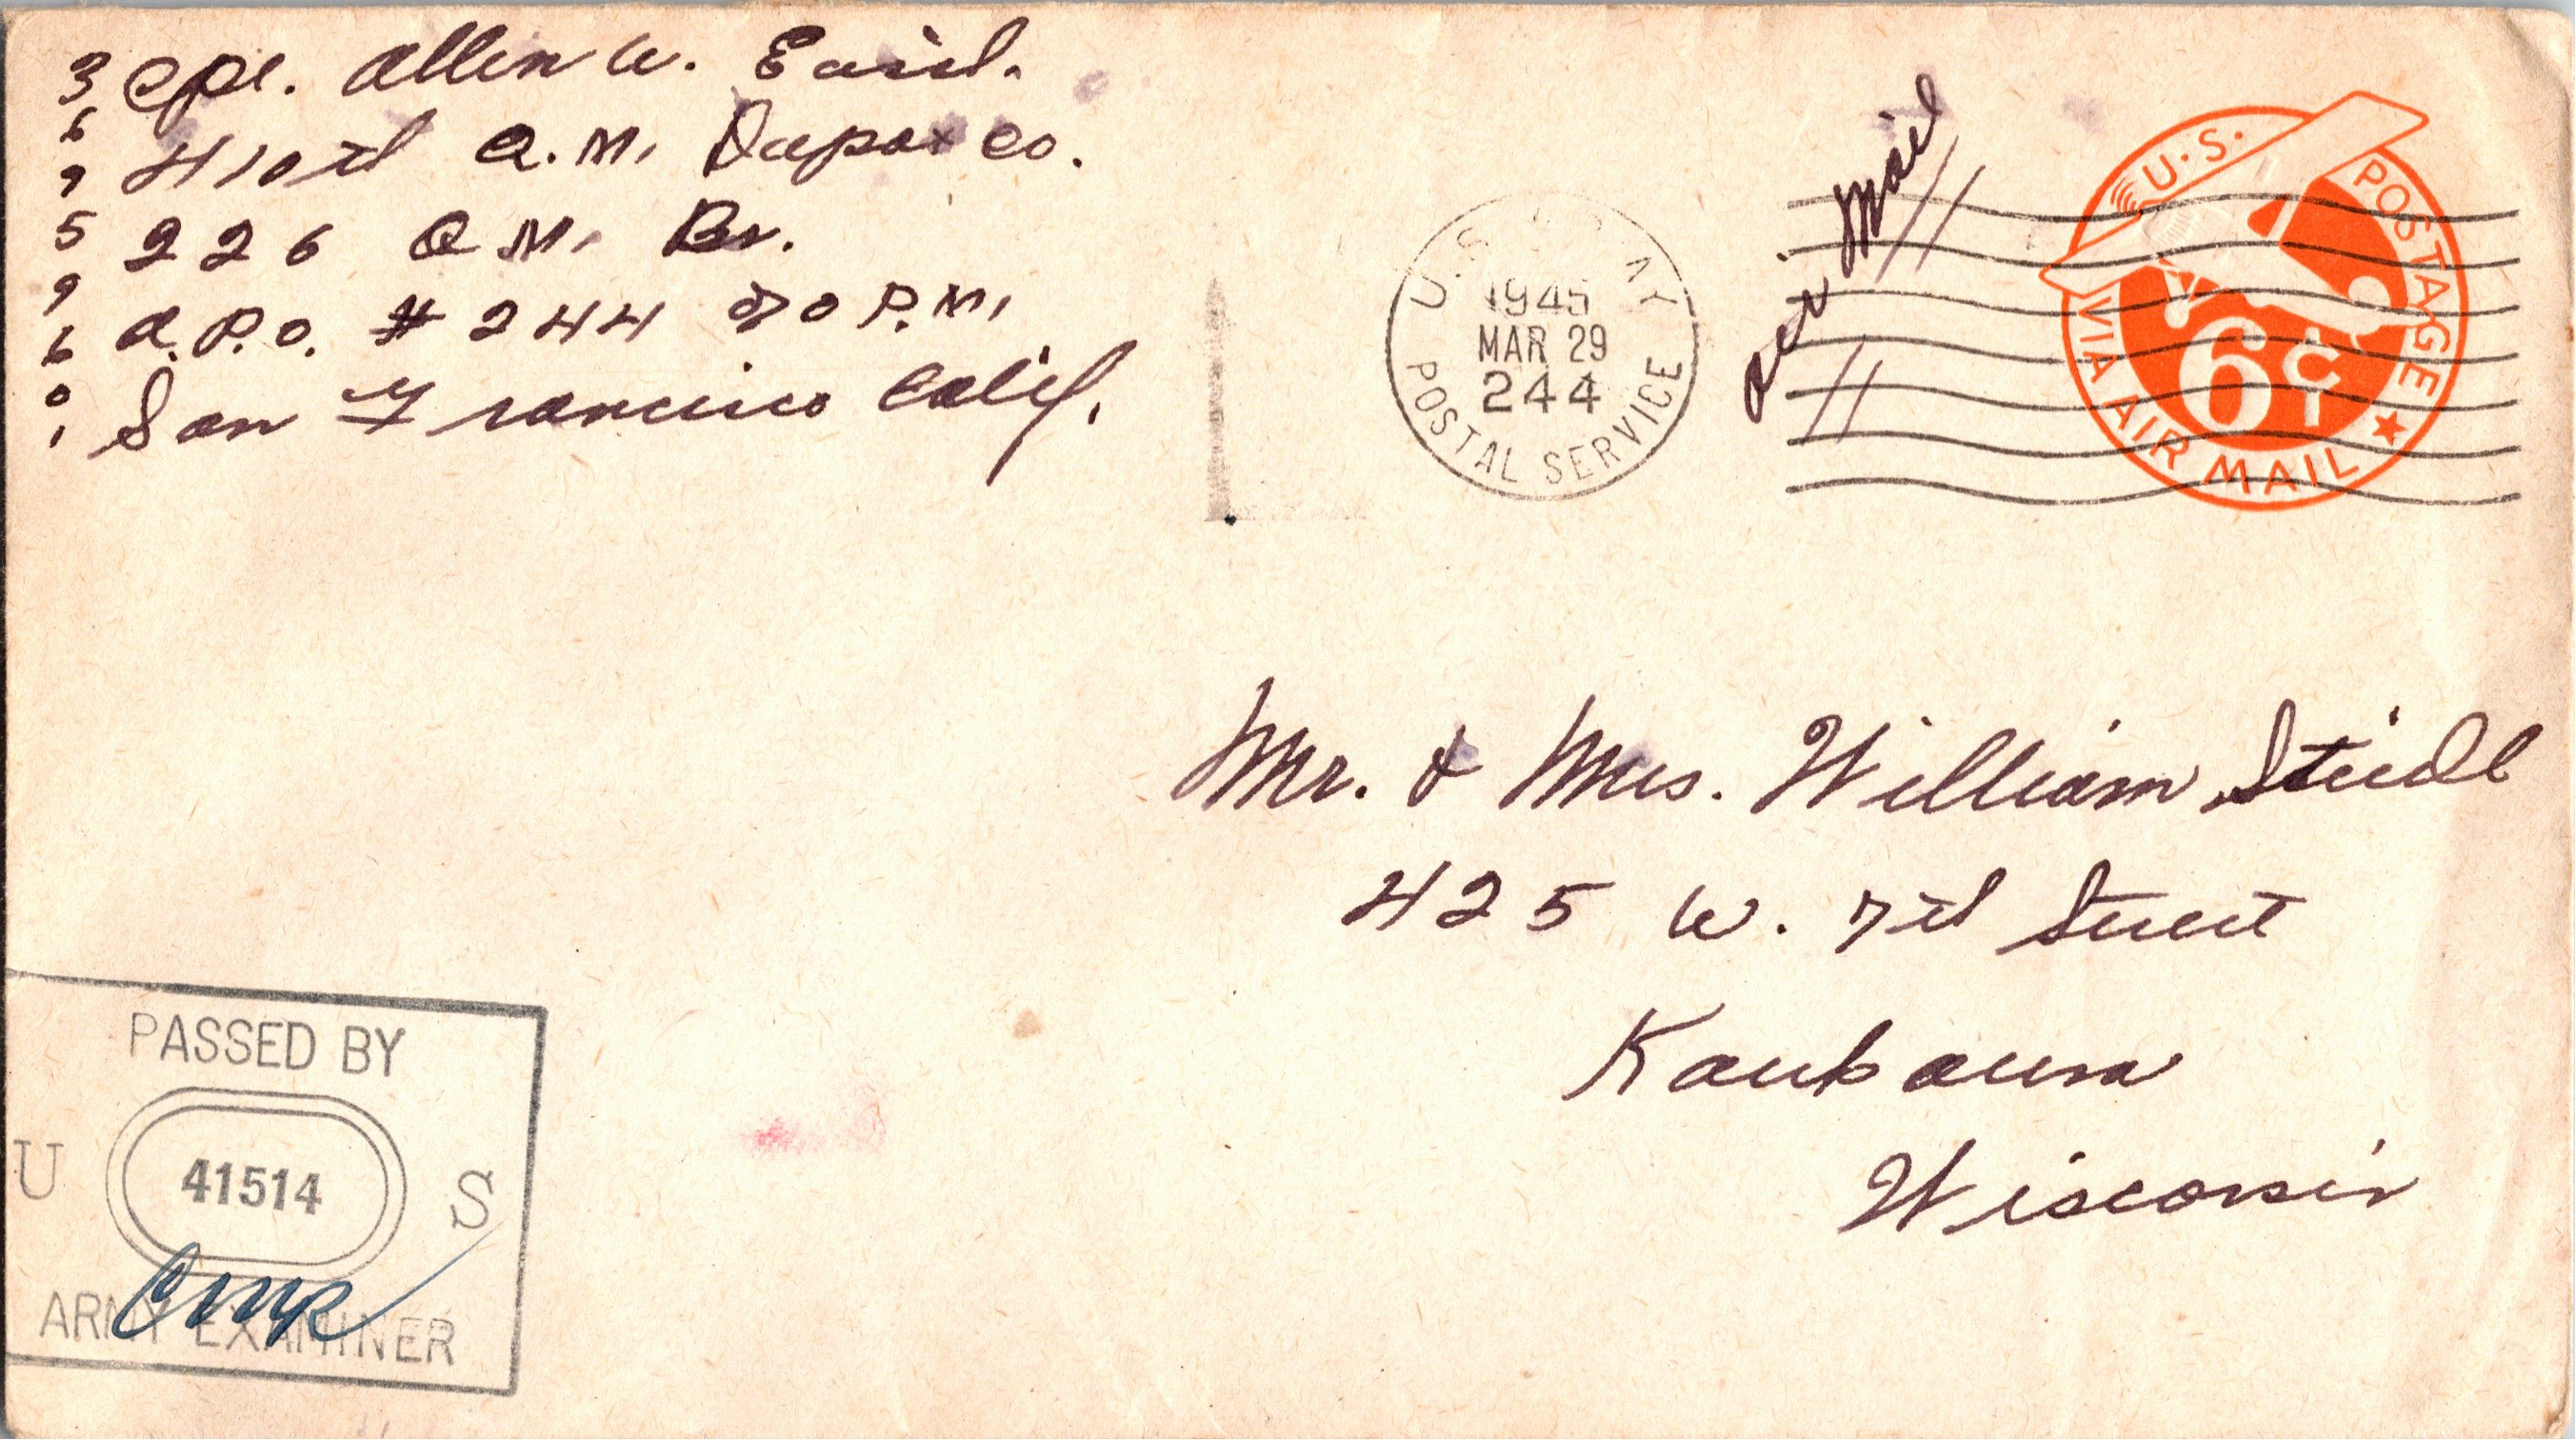 3 6 9 5 9 6 0 1
Cpl. Allen W.
410th Q.M. Depot Co.
226 Q M. Bn.
A.P.O. # 244 % P.M.
San Francisco Calif.
U.S. ARMY
1945
MAR 29
244
POSTAL SERVICE
Air Mail
U.S. POSTAGE
6¢
VIA AIR MAIL
Mr. & Mrs. William Steidl
425 W. 7th Street
Kaukauna
Wisconsin
PASSED BY
U 41514 S
ARMY EXAMINER